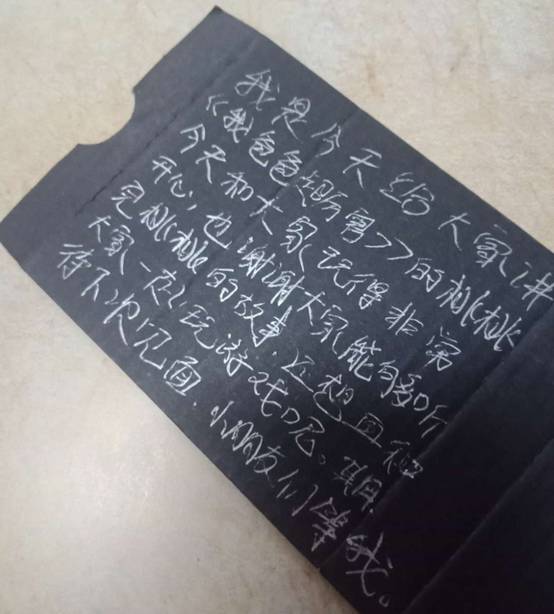 我是今天给大家讲
《我爸爸超厉害》的桃桃
今天和大家玩得非常
开心，也谢谢大家能够听
完桃桃的故事.还想再和
大家一起玩游戏呢。期
待下次见面.小朋友们等我。